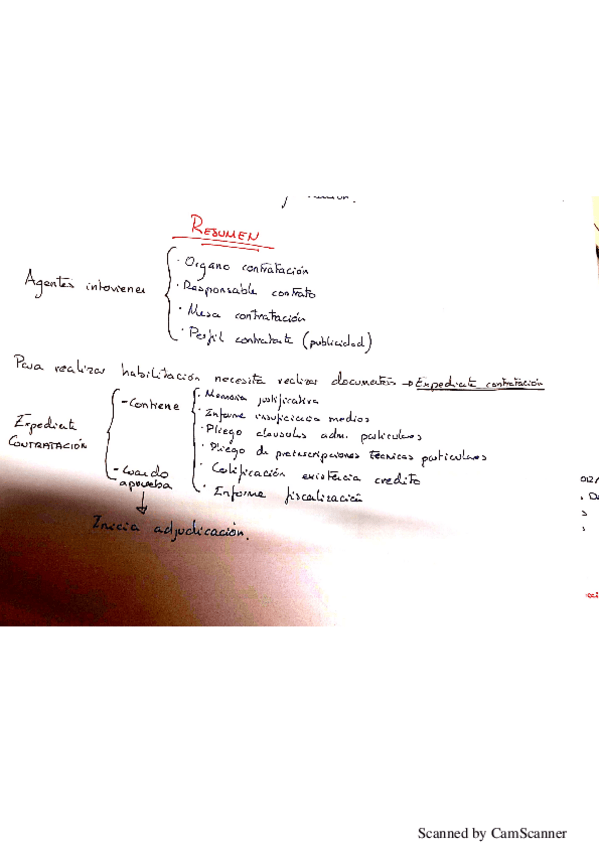 RESUMEN
Agentes intervienen
· Organo contratación
· Responsable contrato
· Mesa contratación
· Perfil contratante (publicidad)
Para realizar habilitación necesita realizar documentos → Expediente contratación
Expediente
CONTRATACIÓN
- Contiene
· Memoria justificativa
· Informe insuficiencia medios
· Pliego clausulas adm. particulares
· Pliego de prescripciones técnicas particulares
· Calificación existencia credito
· Informe fiscalización
- Cuando
aprueba
Inicia adjudicación.
012/
Scanned by CamScanner